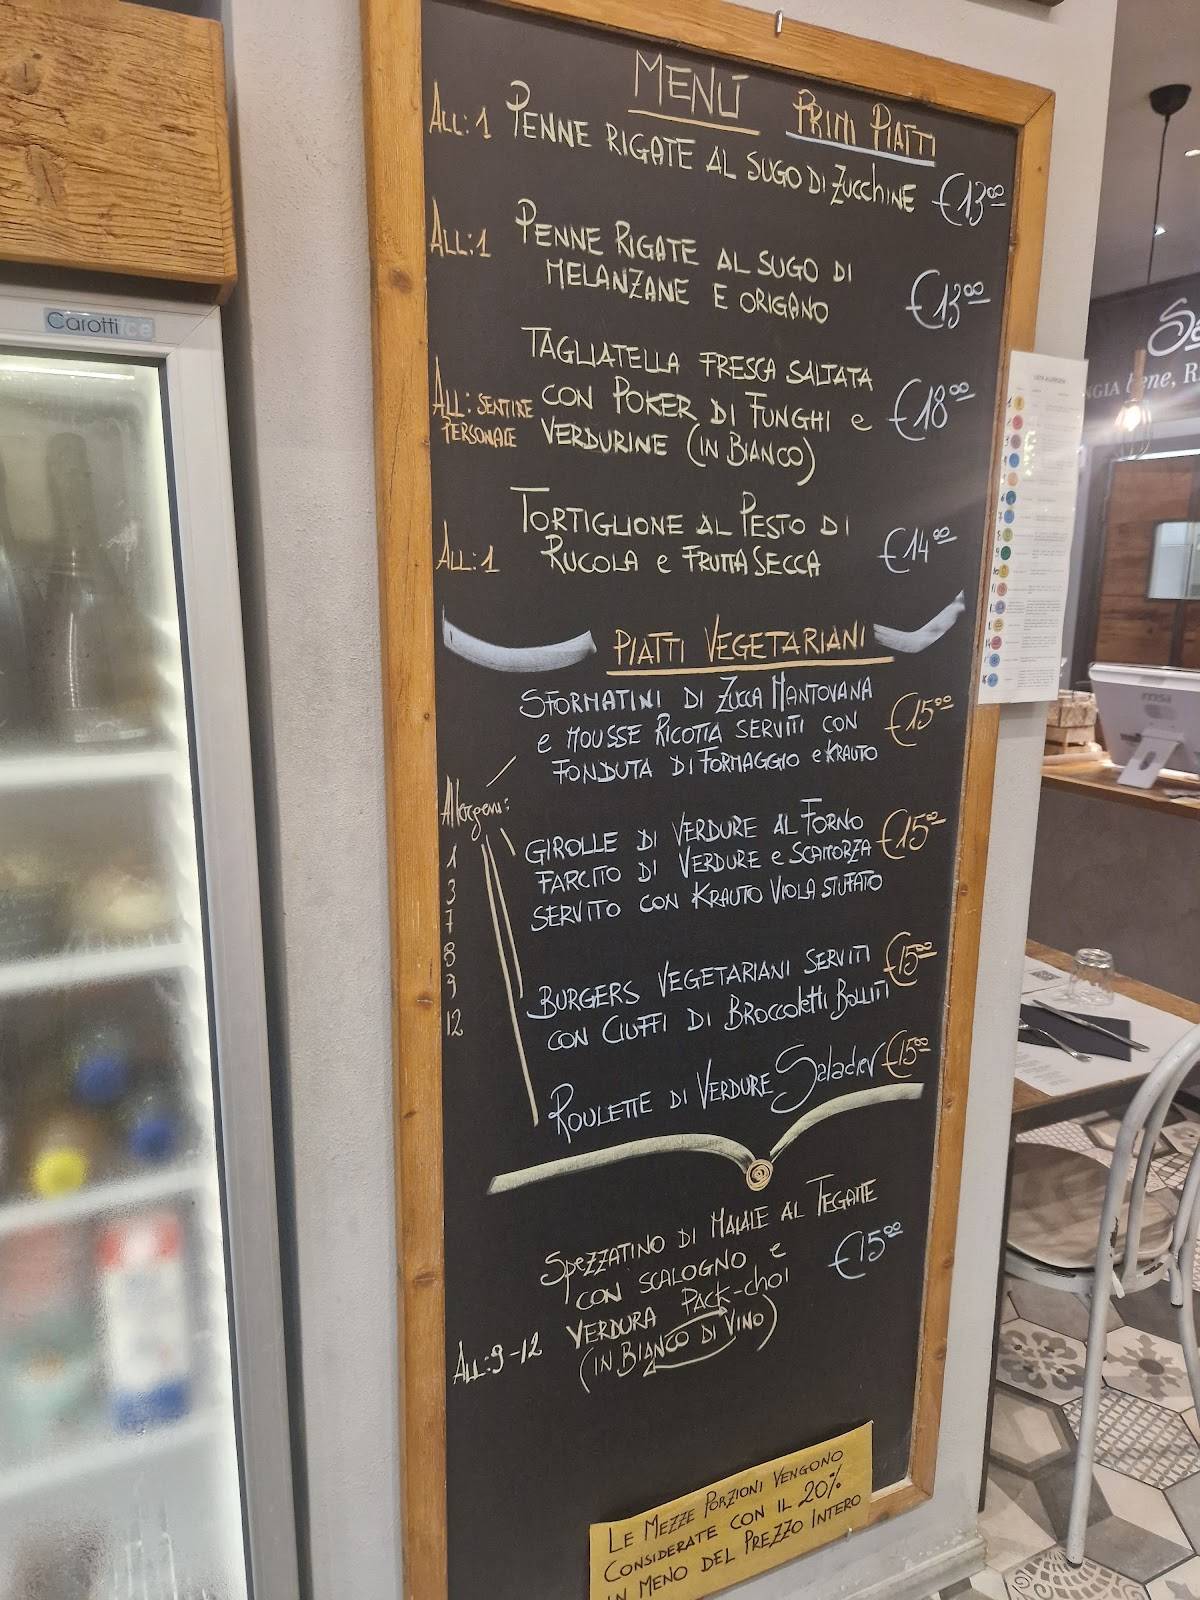 MENÚ PRIMI PIATTI
ALL: 1 PENNE RIGATE AL SUGO DI ZUCCHINE €13,00
ALL: 1 PENNE RIGATE AL SUGO DI
MELANZANE E ORIGANO €13,00
TAGLIATELLA FRESCA SALTATA
ALL: SENTIRE CON POKER DI FUNGHI e €18,00
PERSONALE VERDURINE (IN BIANCO)
TORTIGLIONE AL PESTO DI
ALL: 1 RUCOLA e FRUTTA SECCA €14,00
PIATTI VEGETARIANI
SFORMATINI DI ZUCCA MANTOVANA
e MOUSSE RICOTTA SERVITI CON €15,00
FONDUTA DI FORMAGGIO e KRAUTO
Allergeni:
1
3
7
8
9
12
GIROLLE DI VERDURE AL FORNO
FARCITO DI VERDURE e SCAMORZA €15,00
SERVITO CON KRAUTO VIOLA STUFATO
BURGERS VEGETARIANI SERVITI €15,00
CON CIUFFI DI BROCCOLETTI BOLLITI
ROULETTE DI VERDURE Saladiev €15,00
SPEZZATINO DI MAIALE AL TEGAME
CON SCALOGNO e €15,00
VERDURA PACK-CHOI
ALL: 9-12 (IN BIANCO DI VINO)
LE MEZZE PORZIONI VENGONO
CONSIDERATE CON IL 20%
IN MENO DEL PREZZO INTERO
Carotti ice
NGIA bene, R
msi